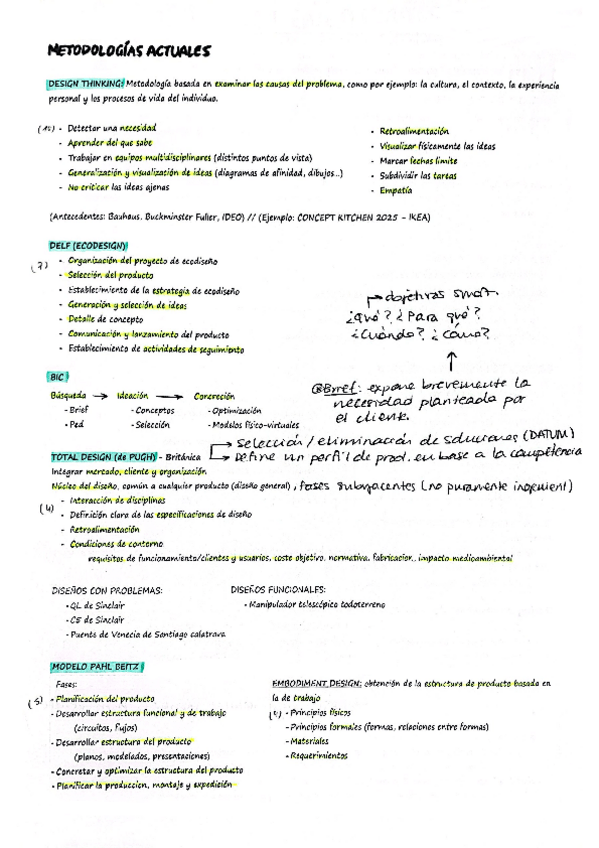 METODOLOGÍAS ACTUALES
DESIGN THINKING: Metodología basada en examinar las causas del problema, como por ejemplo: la cultura, el contexto, la experiencia
personal y los procesos de vida del individuo.
(10) - Detectar una necesidad
- Aprender del que sabe
- Trabajar en equipos multidisciplinares (distintos puntos de vista)
- Generalización y visualización de ideas (diagramas de afinidad, dibujos...)
- No criticar las ideas ajenas
- Retroalimentación
- Visualizar físicamente las ideas
- Marcar fechas límite
- Subdividir las tareas
- Empatía
(Antecedentes: Bauhaus, Buckminster Fuller, IDEO) // (Ejemplo: CONCEPT KITCHEN 2025 - IKEA)
DELF (ECODESIGN)
(7) - Organización del proyecto de ecodiseño
- Selección del producto
- Establecimiento de la estrategia de ecodiseño
- Generación y selección de ideas
- Detalle de concepto
- Comunicación y lanzamiento del producto
- Establecimiento de actividades de seguimiento
→ objetivos smart.
¿qué? ¿Para qué?
¿Cuándo? ¿Cómo?
↑
Brief: expone brevemente la
necesidad planteada por
el cliente.
BIC
Búsqueda → Ideación → Concreción
- Brief - Conceptos - Optimización
- Ped - Selección - Modelos físico-virtuales
TOTAL DESIGN (de PUGH) - Británica
→ selección / eliminación de soluciones (DATUM)
→ Define un perfil de prod. en base a la competencia
Integrar mercado, cliente y organización
Núcleo del diseño, común a cualquier producto (diseño general), fases subyacentes (no puramente ingenieril)
- Interacción de disciplinas
(4) - Definición clara de las especificaciones de diseño
- Retroalimentación
- Condiciones de contorno
requisitos de funcionamiento/clientes y usuarios, coste objetivo, normativa, fabricación, impacto medioambiental
DISEÑOS CON PROBLEMAS:
- QL de Sinclair
- C5 de Sinclair
- Puente de Venecia de Santiago calatrava
DISEÑOS FUNCIONALES:
- Manipulador telescópico todoterreno
MODELO PAHL BEITZ
Fases:
(5) - Planificación del producto
- Desarrollar estructura funcional y de trabajo
(circuitos, flujos)
- Desarrollar estructura del producto
(planos, modelados, presentaciones)
- Concretar y optimizar la estructura del producto
- Planificar la produccion, montaje y expedición
EMBODIMENT DESIGN: obtención de la estructura de producto basada en
la de trabajo
- Principios físicos
- Principios formales (formas, relaciones entre formas)
- Materiales
- Requerimientos